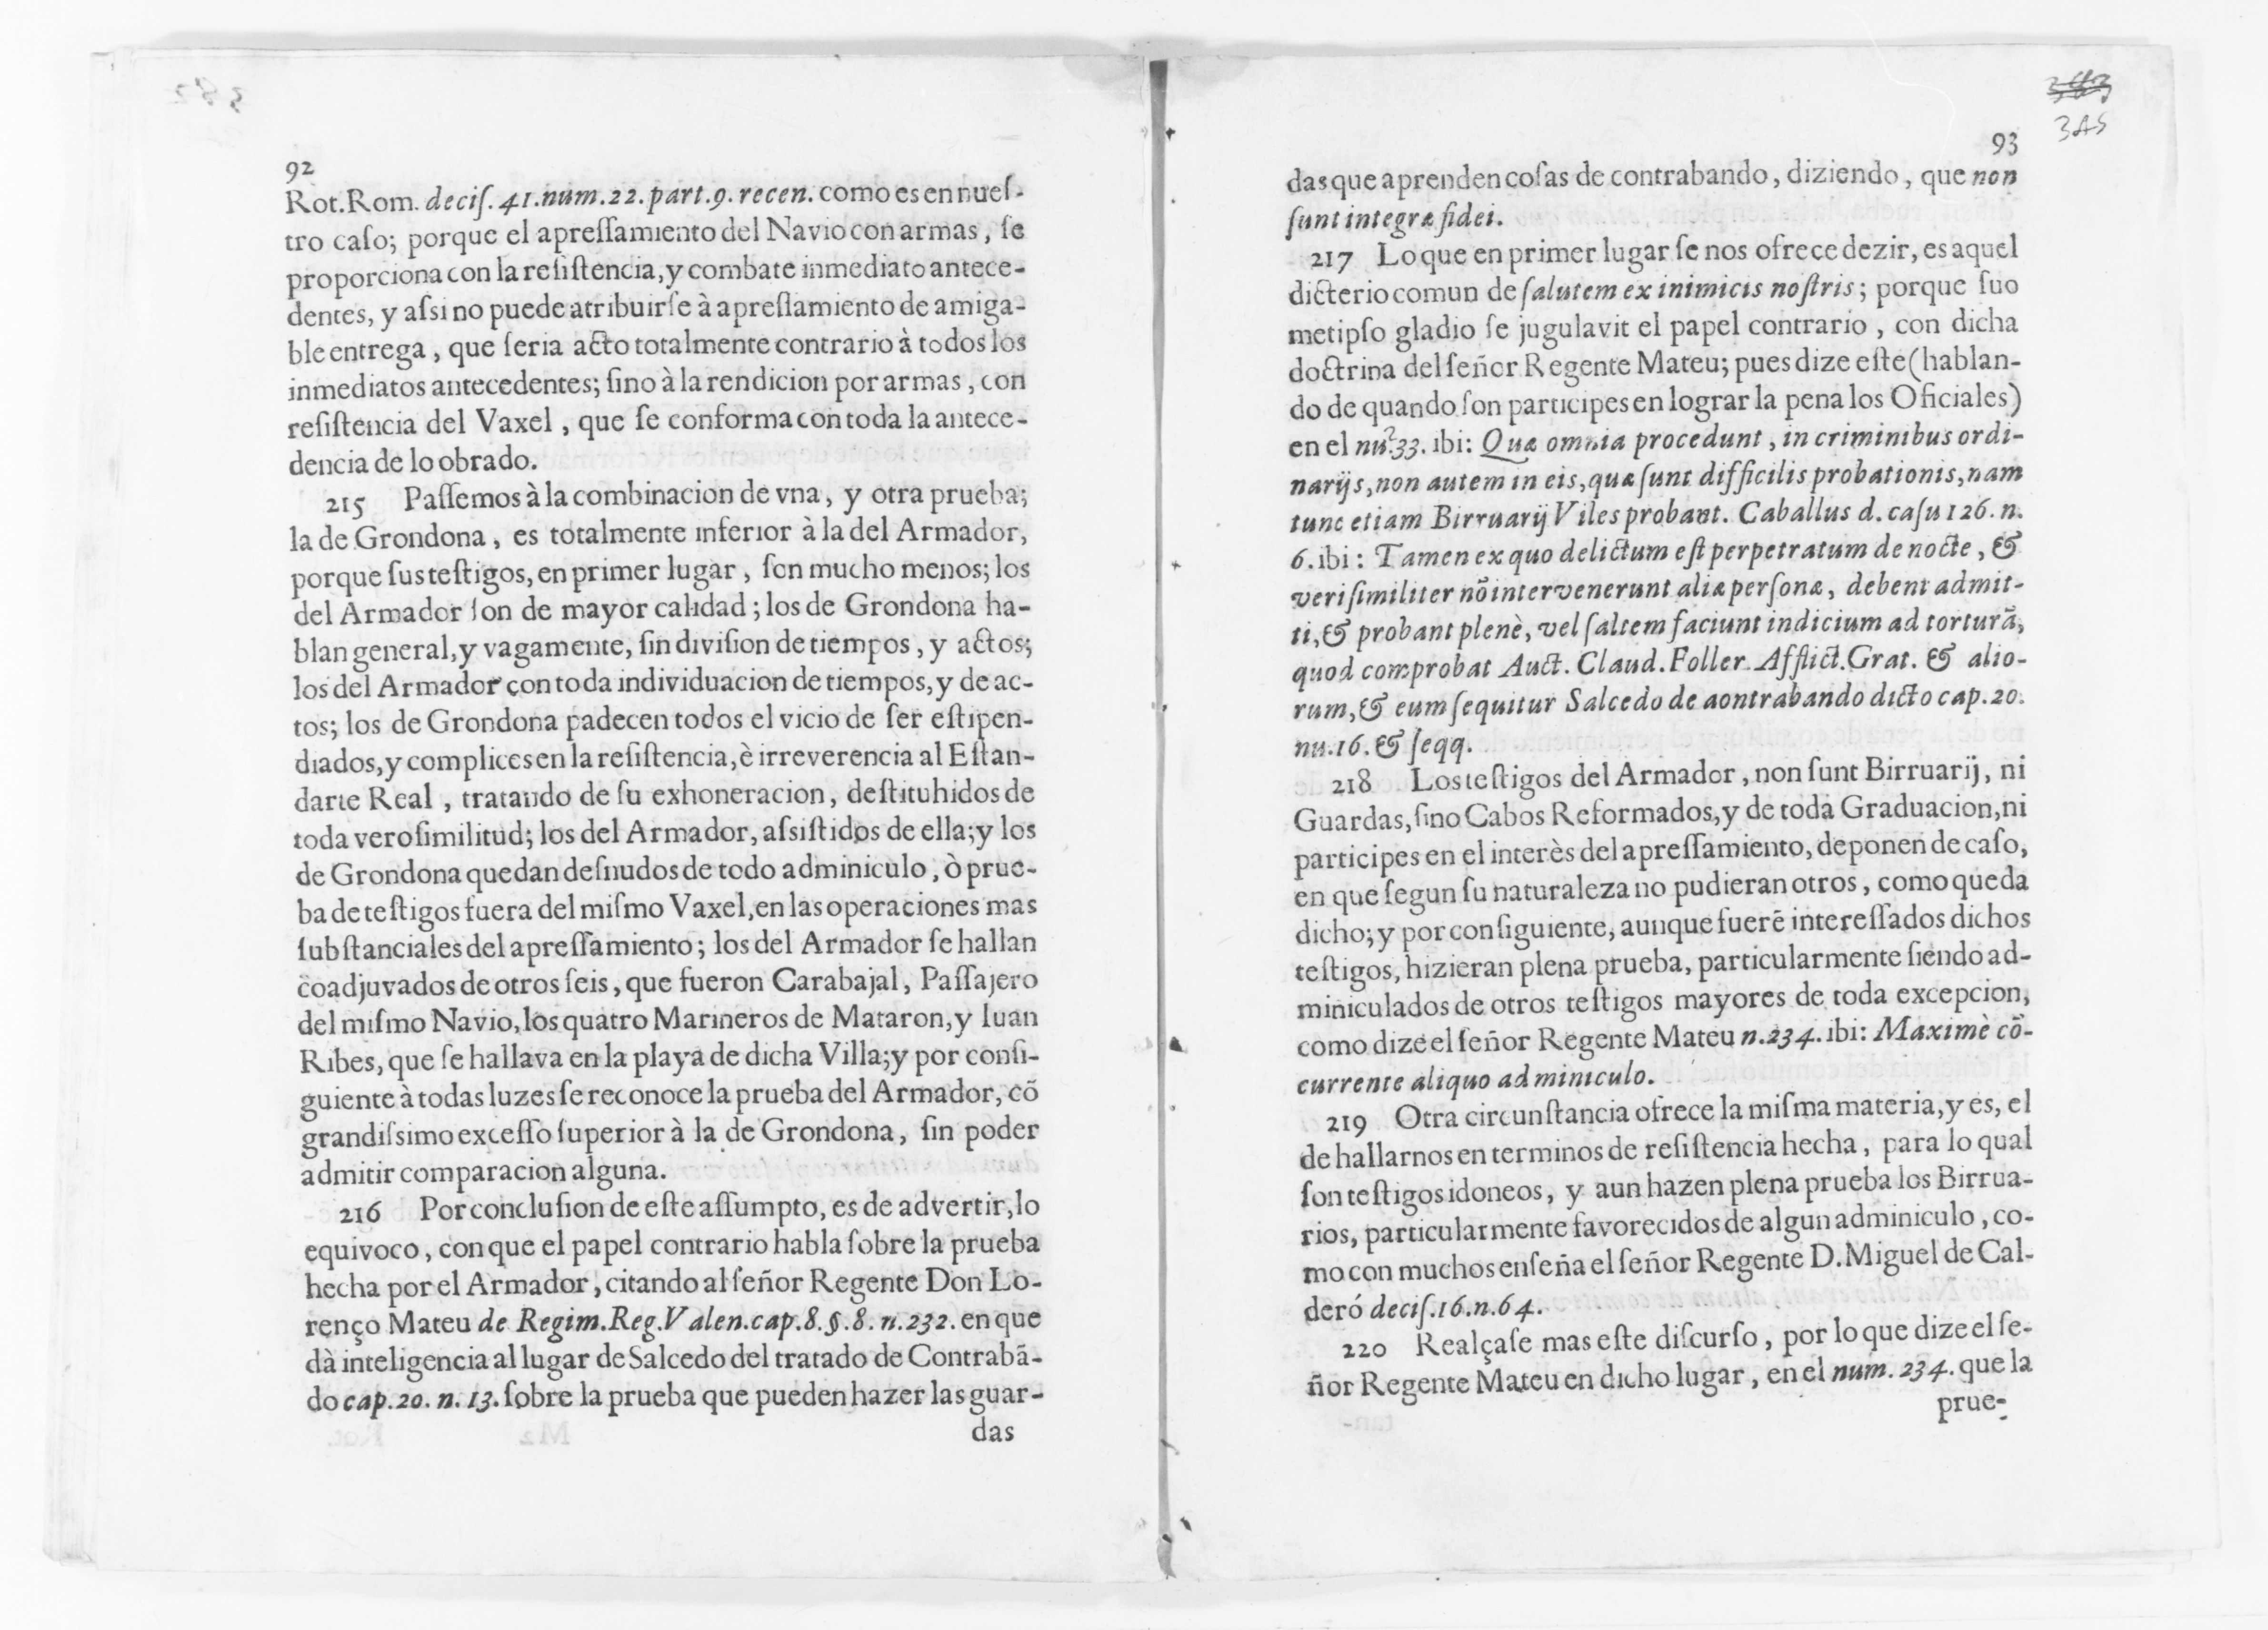 92
Rot.Rom. deciſ. 41.num.22.part.9. recen. como es en nueſ-
tro caſo; porque el apreſſamiento del Navio con armas, ſe
proporciona con la reſiſtencia, y combate inmediato antece-
dentes, y aſsi no puede atribuirſe à apreſſamiento de amiga-
ble entrega, que ſeria acto totalmente contrario à todos los
inmediatos antecedentes; ſino à la rendicion por armas, con
reſiſtencia del Vaxel, que ſe conforma con toda la antece-
dencia de lo obrado.
215 Paſſemos à la combinacion de vna, y otra prueba;
la de Grondona, es totalmente inferior à la del Armador,
porque ſus teſtigos, en primer lugar, ſon mucho menos; los
del Armador ſon de mayor calidad; los de Grondona ha-
blan general, y vagamente, ſin diviſion de tiempos, y actos;
los del Armador con toda individuacion de tiempos, y de ac-
tos; los de Grondona padecen todos el vicio de ſer eſtipen-
diados, y complices en la reſiſtencia, è irreverencia al Eſtan-
darte Real, tratando de ſu exhoneracion, deſtituhidos de
toda veroſimilitud; los del Armador, aſsiſtidos de ella; y los
de Grondona quedan deſnudos de todo adminiculo, ò prue-
ba de teſtigos fuera del miſmo Vaxel, en las operaciones mas
ſubſtanciales del apreſſamiento; los del Armador ſe hallan
coadjuvados de otros ſeis, que fueron Carabajal, Paſſajero
del miſmo Navio, los quatro Marineros de Mataron, y Iuan
Ribes, que ſe hallava en la playa de dicha Villa; y por conſi-
guiente à todas luzes ſe reconoce la prueba del Armador, cõ
grandiſsimo exceſſo ſuperior à la de Grondona, ſin poder
admitir comparacion alguna.
216 Por concluſion de eſte aſſumpto, es de advertir, lo
equivoco, con que el papel contrario habla ſobre la prueba
hecha por el Armador, citando al ſeñor Regente Don Lo-
renço Mateu de Regim.Reg.Valen.cap.8.§.8. n.232. en que
dà inteligencia al lugar de Salcedo del tratado de Contrabã-
do cap.20. n. 13. ſobre la prueba que pueden hazer las guar-
das
383
3A5
93
das que aprenden coſas de contrabando, diziendo, que non
ſunt integræ fidei.
217 Lo que en primer lugar ſe nos ofrece dezir, es aquel
dicterio comun de ſalutem ex inimicis noſtris; porque ſuo
metipſo gladio ſe jugulavit el papel contrario, con dicha
doctrina del ſeñor Regente Mateu; pues dize eſte (hablan-
do de quando ſon participes en lograr la pena los Oficiales)
en el nu. 33. ibi: Quæ omnia procedunt, in criminibus ordi-
narijs, non autem in eis, quæ ſunt difficilis probationis, nam
tunc etiam Birruarij Viles probant. Caballus d. caſu 126. n.
6. ibi: Tamen ex quo delictum eſt perpetratum de nocte, &
veriſimiliter nõ intervenerunt aliæ perſonæ, debent admit-
ti, & probant plenè, vel ſaltem faciunt indicium ad torturã,
quod comprobat Auct. Claud. Foller. Afflict. Grat. & alio-
rum, & eum ſequitur Salcedo de aontrabando dicto cap.20.
nu.16. & ſeqq.
218 Los teſtigos del Armador, non ſunt Birruarij, ni
Guardas, ſino Cabos Reformados, y de toda Graduacion, ni
participes en el interès del apreſſamiento, deponen de caſo,
en que ſegun ſu naturaleza no pudieran otros, como queda
dicho; y por conſiguiente, aunque fuerẽ intereſſados dichos
teſtigos, hizieran plena prueba, particularmente ſiendo ad-
miniculados de otros teſtigos mayores de toda excepcion,
como dize el ſeñor Regente Mateu n.234. ibi: Maximè cõ-
currente aliquo adminiculo.
219 Otra circunſtancia ofrece la miſma materia, y es, el
de hallarnos en terminos de reſiſtencia hecha, para lo qual
ſon teſtigos idoneos, y aun hazen plena prueba los Birrua-
rios, particularmente favorecidos de algun adminiculo, co-
mo con muchos enſeña el ſeñor Regente D. Miguel de Cal-
deró deciſ.16.n.64.
220 Realçaſe mas eſte diſcurſo, por lo que dize el ſe-
ñor Regente Mateu en dicho lugar, en el num. 234. que la
prue-